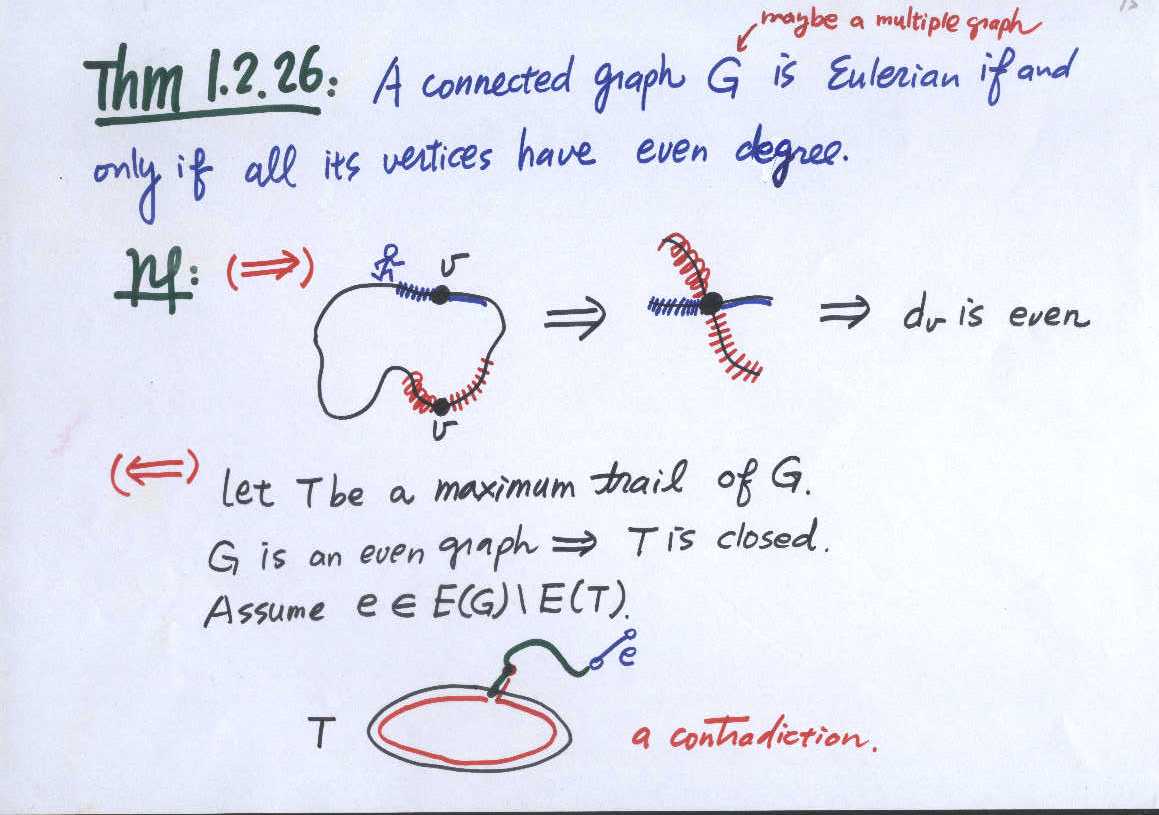 maybe a multiple graph
Thm 1.2.26: A connected graph G is Eulerian if and
only if all its vertices have even degree.
pf: (⇒)
v
⇒ ⇒ dv is even
v
(⇐) Let T be a maximum trail of G.
G is an even graph ⇒ T is closed.
Assume e ∈ E(G) \ E(T).
e
T a contradiction.